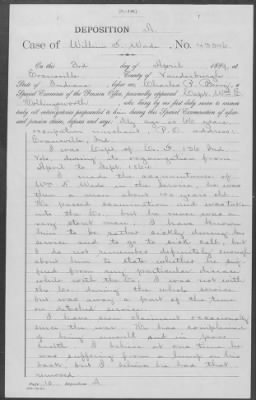 DEPOSITION A
Case of Will S. Wade, No.
On this 3rd day of April, 189 , at
Evansville, County of Vanderburgh
State of Indiana, before me, Charles P. , a
Special Examiner of the Pension Office, personally appeared Capt. Wm
Hollingsworth, who, being by me first duly sworn to answer
truly all interrogatories propounded to during this Special Examination of afore-
said pension claim, deposes and says: My age is 60 years
occupation merchant, P.O. address:
Evansville, Ind.
I was Capt of Co. 136 Ind.
Vols. during its organization from
April to Sept. 1864
I made the acquaintance of
Wm S. Wade in the service, he was
then a man about 40 years old.
He passed examination and was taken
into the Co. but he never was a
very stout man. I have known
him to be rather sickly during his
service and to go to sick call, but
I do not remember definitely enough
about him to state whether he suf-
fered from any particular disease
while with the Co. I was not with
the Co. during the whole service
but was away a part of the time
on detailed service.
I have seen claimant occasionally
since the war. He has complained
of being unwell and in poor
health. I believe at one time he
was suffering from a lump on his
back, but I believe he had that
removed.
Page 10 Deposition A